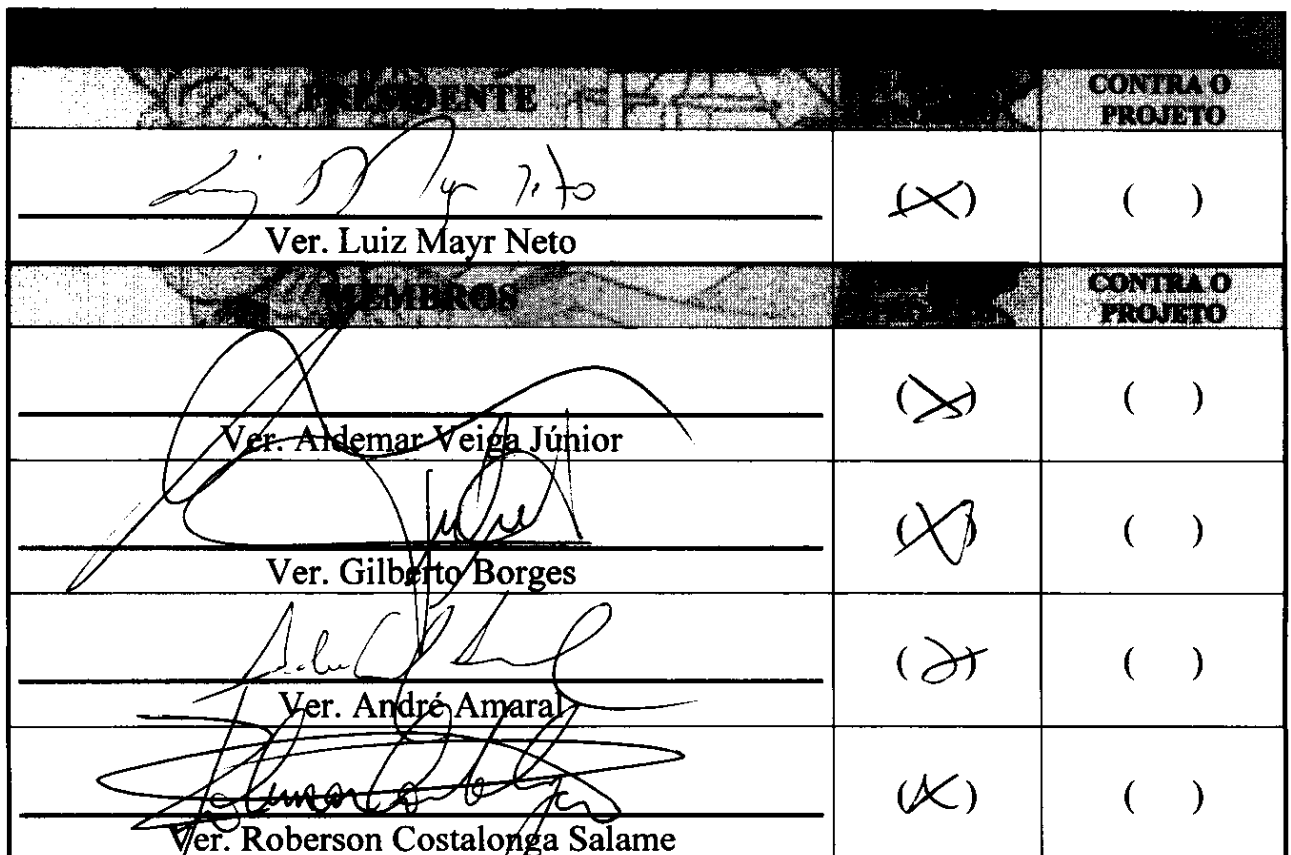 PRESIDENTE
CONTRA O
PROJETO
( X ) ( )
Ver. Luiz Mayr Neto
MEMBROS
CONTRA O
PROJETO
( X ) ( )
Ver. Aldemar Veiga Júnior
( X ) ( )
Ver. Gilberto Borges
( ) ( )
Ver. André Amaral
( X ) ( )
Ver. Roberson Costalonga Salame